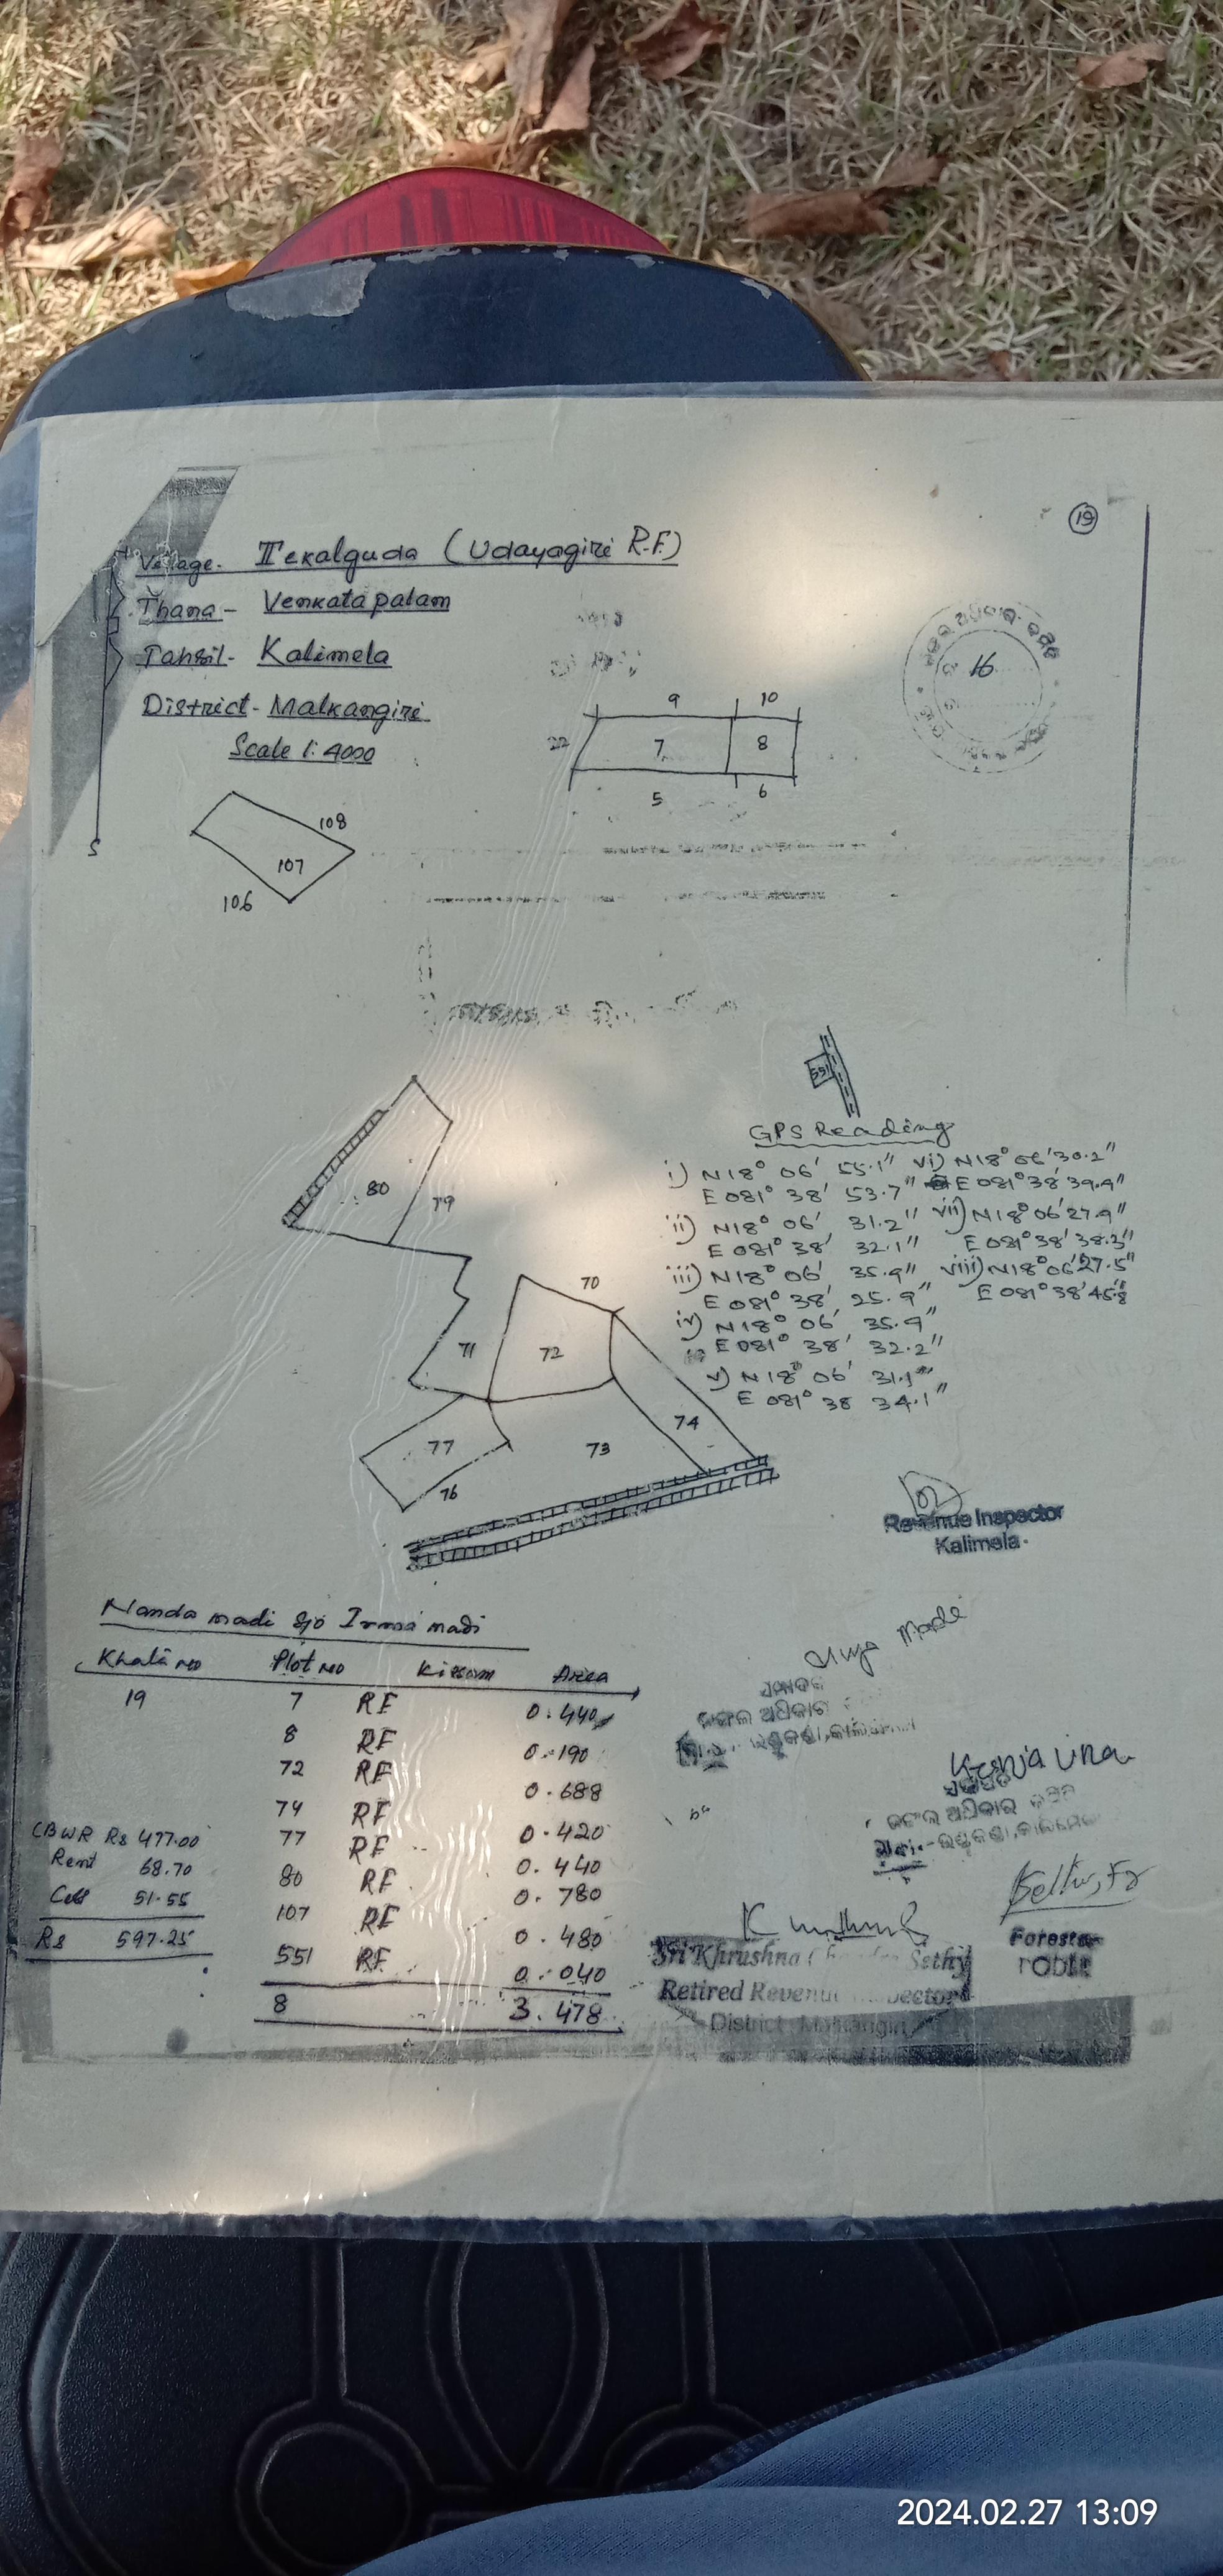 19
Village- Tekalguda (Udayagiri R.F.)
Thana- Venkatapalam
Tahsil- Kalimela
District- Malkangiri
Scale 1: 4000
S
16
9 10
22 7 8
5 6
108
107
106
551
80
79
70
71 72
74
77 73
76
GPS Reading
i) N18° 06' 55.1"
E 081° 38' 53.7"
ii) N18° 06' 31.2"
E 081° 38' 32.1"
iii) N18° 06' 35.9"
E 081° 38' 25.9"
iv) N18° 06' 35.9"
E 081° 38' 32.2"
v) N18° 06' 31.1"
E 081° 38 34.1"
vi) N18° 06' 30.2"
E 081° 38' 39.9"
vii) N18° 06' 27.9"
E 081° 38' 38.3"
viii) N18° 06' 27.5"
E 081° 38' 45.8"
Revenue Inspector
Kalimela.
Nanda madi S/o Irma madi
Khata no Plot no Kisam Area
19 7 RF 0.440
8 RF 0.190
72 RF 0.688
74 RF 0.420
77 RF 0.440
80 RF 0.780
107 RF 0.480
551 RF 0.040
8 3.478
CBWR Rs 477.00
Rent 68.70
Cess 51.55
Rs 597.25
Madi
ଜଙ୍ଗଲ ଅଧିକାର
ଜଙ୍ଗଲ ଅଧିକାର କମିଟି
Forester
Sri Khrushna Chandra Sethy
Retired Revenue Inspector
District, Malkangiri
2024.02.27 13:09